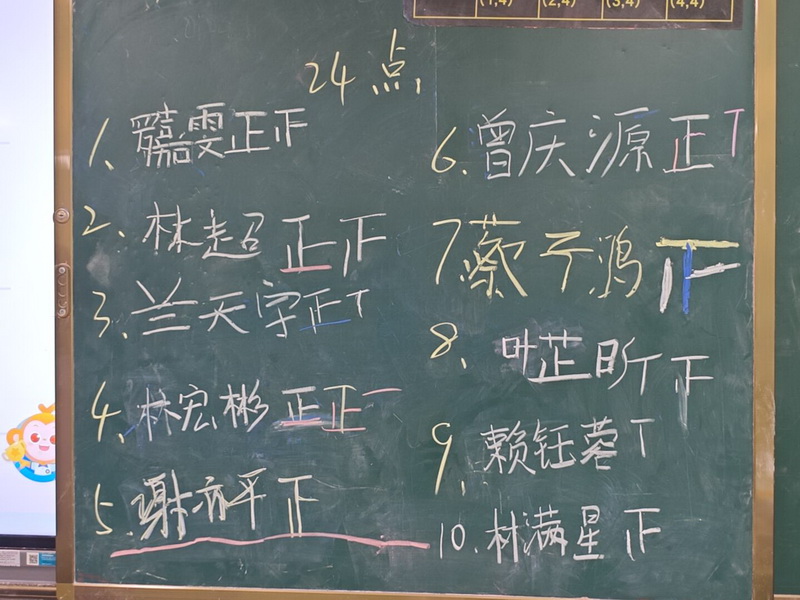 (1,4) (2,4) (3,4) (4,4)
24点
1、 雯正正
2、林超正正
3、兰天宇正T
4、林宏彬正正一
5.谢亦平正
6.曾庆源正T
7.蔡子鸿正
8、叶芷昕正
9.赖钰蓉T
10.林满星正